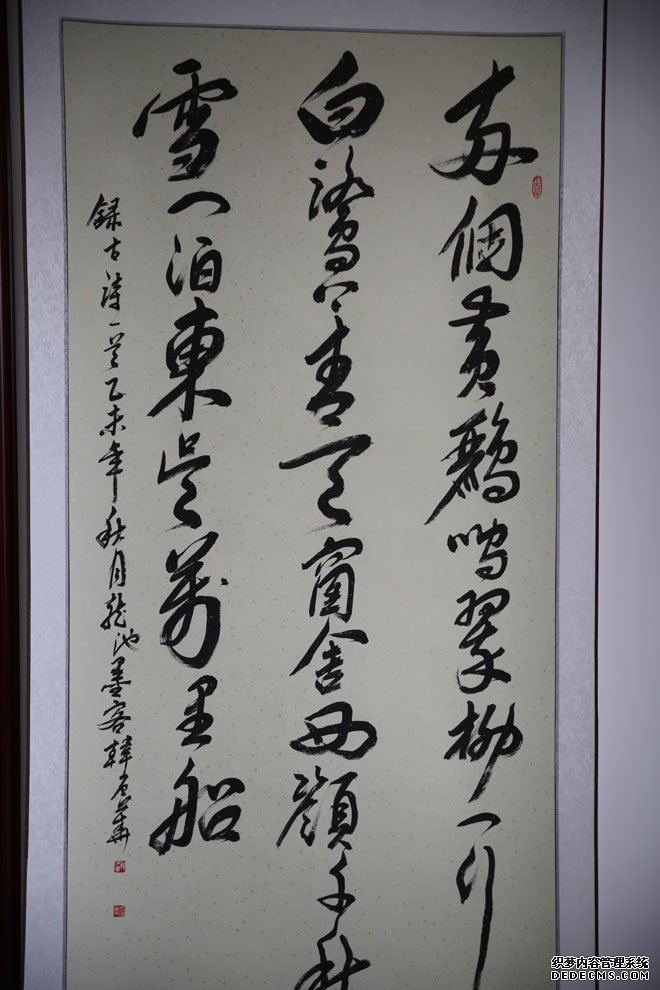 两個黄鸝鳴翠柳一行
白鷺上青天窗含西嶺千秋
雪门泊東吴萬里船
録古诗一首乙未年秋月龍池墨客韓華
织梦内容管理系统
DEDECMS.COM